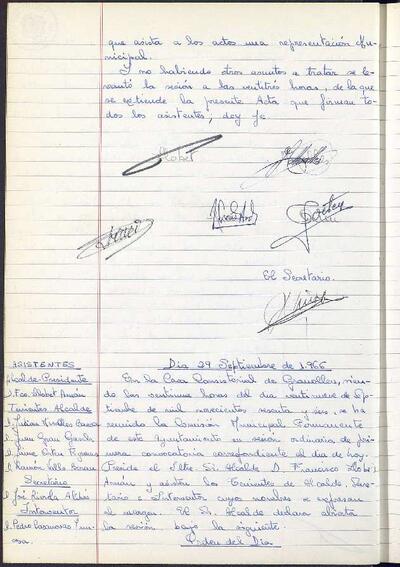 que asista a los actos una representación Mu-
nicipal.
Y no habiendo otros asuntos a tratar se le-
vantó la sesión a las veintitrés horas, de la que
se extiende la presente Acta que firman to-
dos los asistentes; doy fe.
El Secretario.
ASISTENTES
Alcalde-Presidente
D. Fco. Llobet Arnán
Tenientes Alcalde
Secretario
Interventor
Día 29 Septiembre de 1.966
En la Casa Consistorial de Granollers, sien-
do las veintiuna horas del día veintinueve de Sep-
tiembre de mil novecientos sesenta y seis, se ha
reunido la Comisión Municipal Permanente
de este Ayuntamiento en sesión ordinaria de pri-
mera convocatoria correspondiente al día de hoy.
Preside el Iltre. Sr. Alcalde D. Francisco Llobet
Arnán y asisten los Tenientes de Alcalde, Secre-
tario e Interventor cuyos nombres se expresan
al margen. El Sr. Alcalde declara abierta
la sesión bajo la siguiente.
Orden del Día